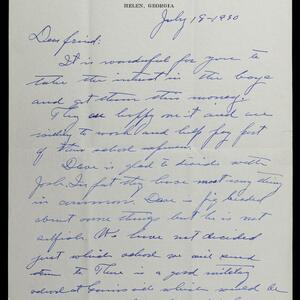 HELEN, GEORGIA
July 19-1930
Dear friend:
It is wonderful for you to
take the interest in the boys
and get them this money.
They are happy on it and are
willing to work and help pay part
of their school expenses.
Dave is glad to divide with
Josh. In fact they have most everything
in common. Dave is pig headed
about some things but he is not
selfish. We have not decided
just which school we will send
them to There is a good military
school at which would be